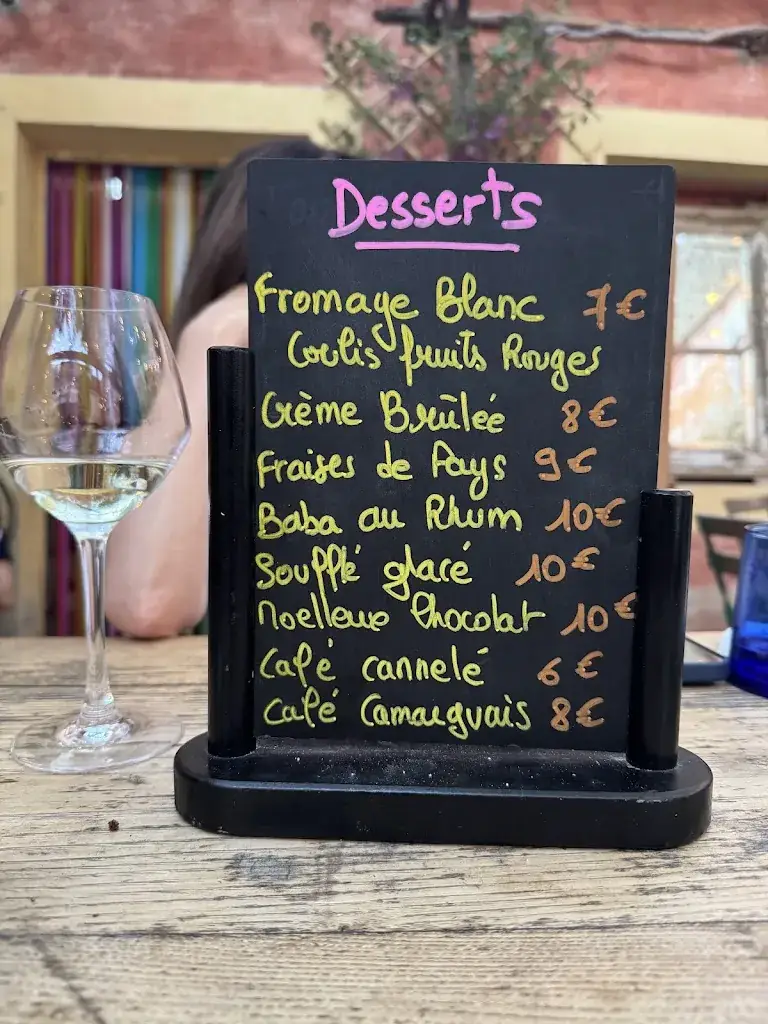 Desserts
Fromage Blanc 7€
Coulis fruits Rouges
Crème Brûlée 8€
Fraises de Pays 9€
Baba au Rhum 10€
Soufflé glacé 10€
Moelleux Chocolat 10€
Café cannelé 6€
Café Camarguais 8€